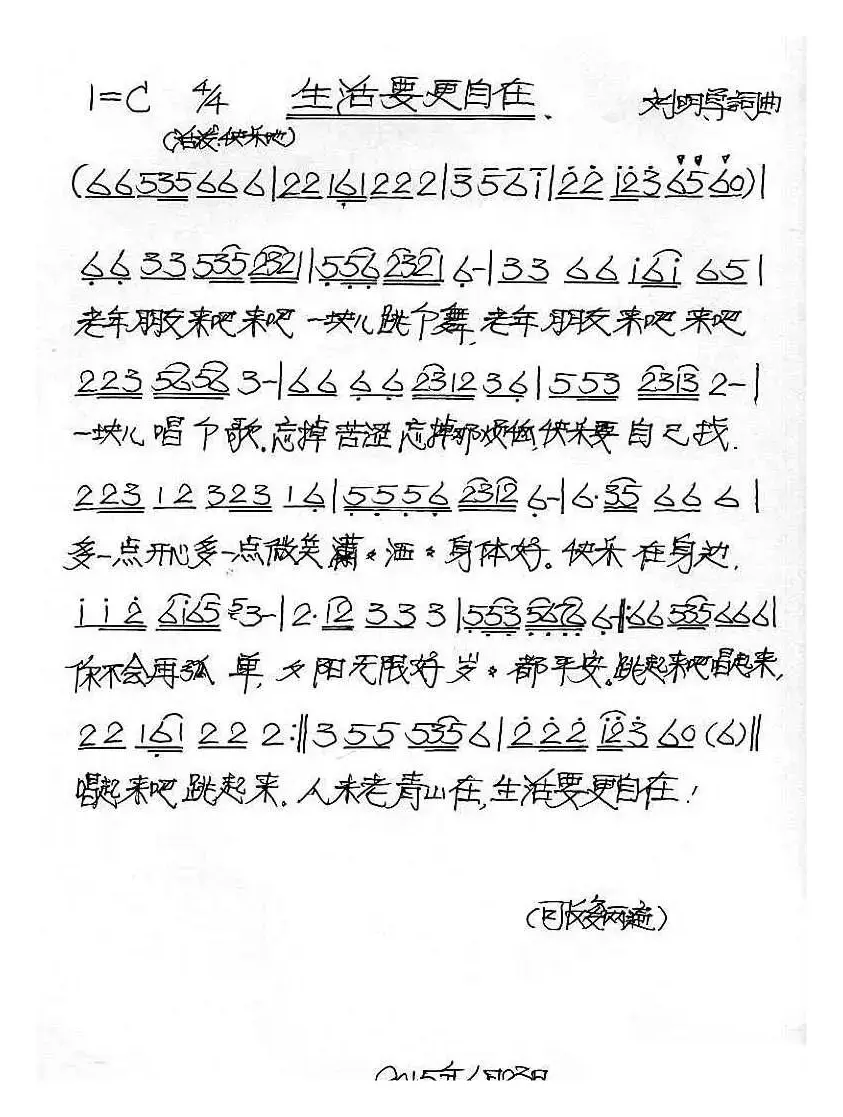 1=C 4/4 生活要更自在. 刘明导詞曲
(活泼.快乐地)
(66535666|2216̣1222|3̄5̄6̄i̇|2̇2̇i̇2̇3̇6560)|
6̣6̣3353523211|5̣5̣6̣23216̣-|3366i̇6i̇65|
老年朋友来吧来吧一块儿跳个舞,老年朋友来吧来吧
22356563-|666̣6̣231236̣|55323132-|
一块儿唱个歌.忘掉苦涩忘掉那烦恼,快乐要自己找.
2231232316̣|5̣5̣5̣6̣23126̣-|6·35666|
多一点开心多一点微笑潇*洒*身体好。快乐在身边,
i̇i̇2̇6i̇6553-|2·12333|5̣5̣35̣6̣7̣6̣6̣-‖:66535666|
你不会再孤单,夕阳无限好岁*都平安。跳起来吧唱起来,
2216̣1222:‖3555356|2̇2̇2̇i̇2̇3̇60(6)‖
唱起来吧跳起来.人未老青山在,生活要更自在!